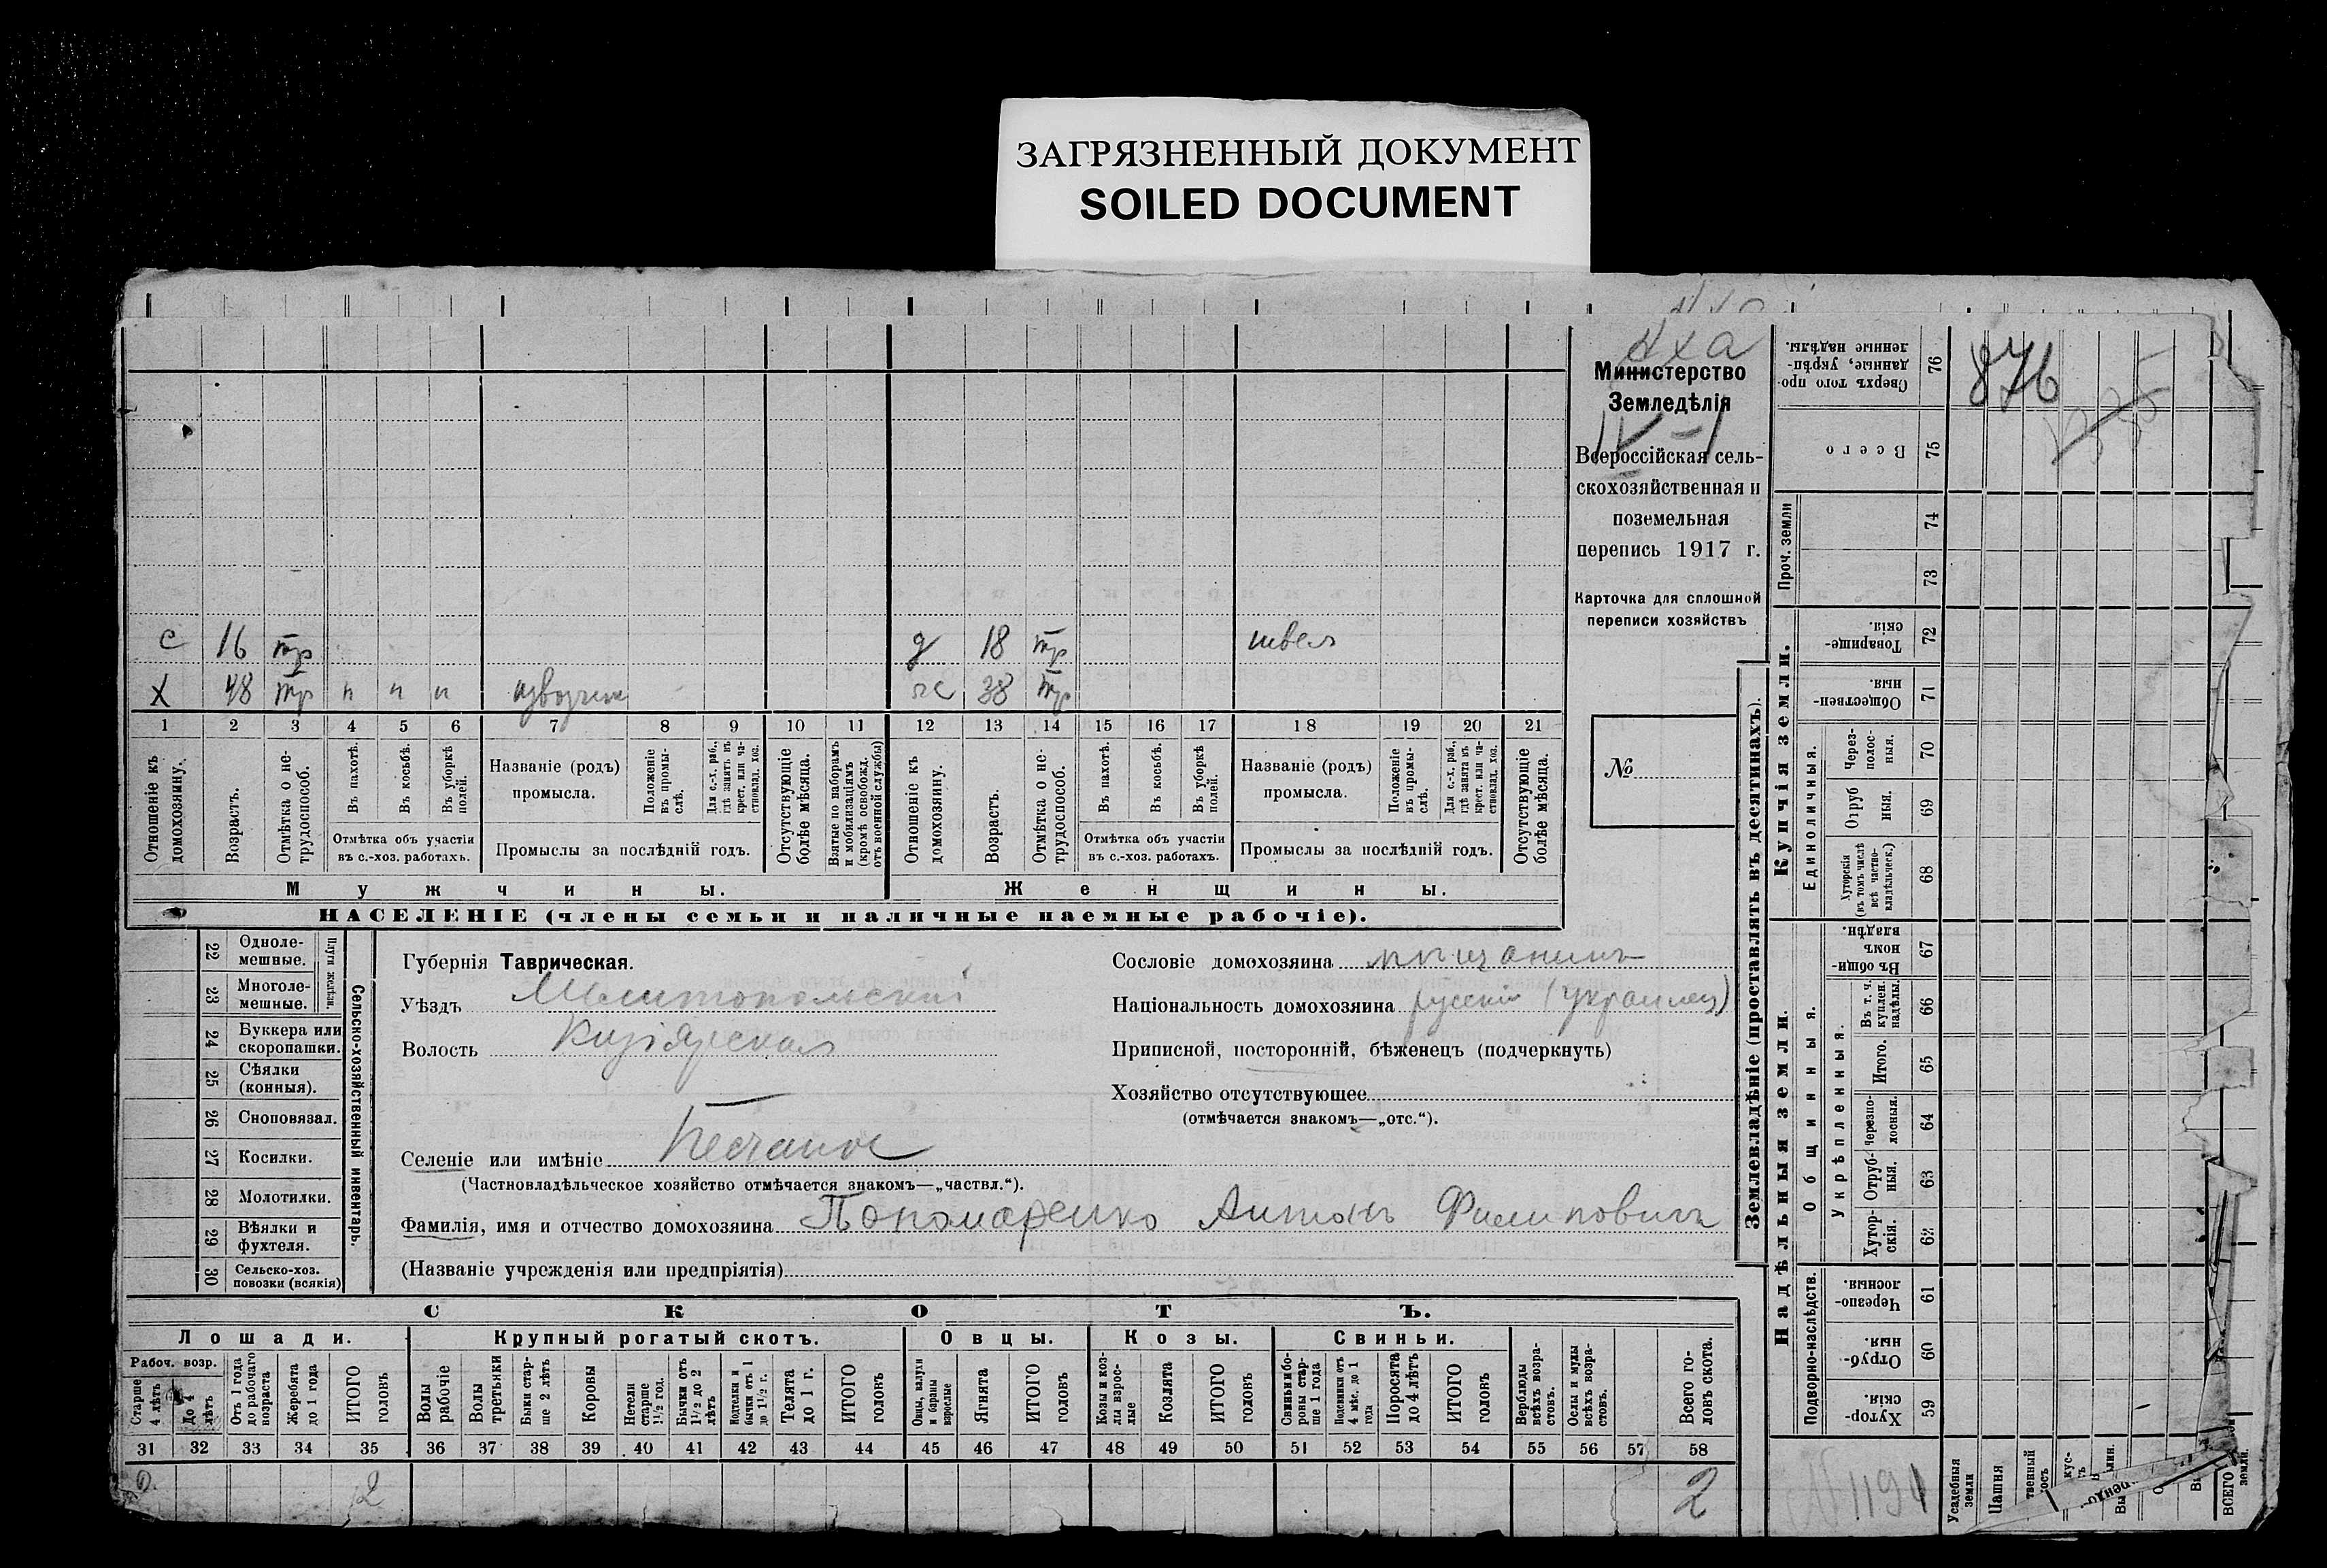 ЗАГРЯЗНЕННЫЙ ДОКУМЕНТ
SOILED DOCUMENT
Аха
Министерство
Земледѣлія
IV-1
Всероссійская сель-
скохозяйственная и
поземельная
перепись 1917 г.
Карточка для сплошной
переписи хозяйствъ
№
с 16 тр д 18 тр швея
х 48 тр п п п извозчик ж 38 тр
1 2 3 4 5 6 7 8 9 10 11 12 13 14 15 16 17 18 19 20 21
Отношеніе къ домохозяину.
Возрастъ.
Отмѣтка о не-трудоспособ.
Въ пахотѣ.
Въ косьбѣ.
Въ уборкѣ полей.
Отмѣтка объ участіи
въ с.-хоз. работахъ.
Названіе (родъ)
промысла.
Положеніе въ промы-слѣ.
Для с.-х. раб., гдѣ занятъ въ крест. или ча-стновлад. хоз.
Промыслы за послѣдній годъ.
Отсутствующіе болѣе мѣсяца.
Взятые по наборамъ и мобилизаціямъ (кромѣ освобожд. отъ военной службы)
Отношеніе къ домохозяину.
Возрастъ.
Отмѣтка о не-трудоспособ.
Въ пахотѣ.
Въ косьбѣ.
Въ уборкѣ полей.
Отмѣтка объ участіи
въ с.-хоз. работахъ.
Названіе (родъ)
промысла.
Положеніе въ промы-слѣ.
Для с.-х. раб., гдѣ занята въ крест. или ча-стновлад. хоз.
Промыслы за послѣдній годъ.
Отсутствующіе болѣе мѣсяца.
Мужчины. Женщины.
НАСЕЛЕНІЕ (члены семьи и наличные наемные рабочіе).
Сельско-хозяйственный инвентарь.
Плуги желѣзн.
22 Одноле-мешные.
23 Многоле-мешные.
24 Буккера или скоропашки.
25 Сѣялки (конныя).
26 Сноповязал.
27 Косилки.
28 Молотилки.
29 Вѣялки и фухтеля.
30 Сельско-хоз. повозки (всякія)
Губернія Таврическая.
Уѣздъ Мелитопольскій
Волость Кизіярская
Селеніе или имѣніе Песчаное
(Частновладѣльческое хозяйство отмѣчается знакомъ—„частвл.“).
Сословіе домохозяина мѣщанинъ
Національность домохозяина русскій (украинец)
Приписной, посторонній, бѣженецъ (подчеркнуть)
Хозяйство отсутствующее
(отмѣчается знакомъ—„отс.“).
Фамилія, имя и отчество домохозяина Пономаренко Антонъ Филиповичъ
(Названіе учрежденія или предпріятія)
СКОТЪ.
Лошади. Крупный рогатый скотъ. Овцы. Козы. Свиньи.
Рабоч. возр.
Старше 4 лѣтъ
До 4 лѣтъ
Отъ 1 года до рабочаго возраста
Жеребята до 1 года
ИТОГО головъ
Волы рабочіе
Волы третьяки
Быки стар-ше 2 лѣтъ
Коровы
Нетели старше 1½ год.
Бычки отъ 1½ до 2 лѣтъ
Подтелки и бычки отъ 1 до 1½ г.
Телята до 1 г.
ИТОГО головъ
Овцы, валухи и бараны взрослые
Ягнята
ИТОГО головъ
Козы и коз-лы взрос-лые
Козлята
ИТОГО головъ
Свиньи и бо-ровы стар-ше 1 года
Подсвинки отъ 4 мѣс. до 1 года
Поросята до 4 лѣтъ
ИТОГО головъ
Верблюды всѣхъ возра-стовъ.
Ослы и мулы всѣхъ возра-стовъ.
Всего го-ловъ скота.
31 32 33 34 35 36 37 38 39 40 41 42 43 44 45 46 47 48 49 50 51 52 53 54 55 56 57 58
2 2 2
Землевладѣніе (проставлять въ десятинахъ).
Надѣльныя земли. Купчія земли.
Проч. земли
Подворно-наслѣдств.
Общинныя.
Укрѣпленныя.
Единоличныя.
76 Сверхъ того про-данные, укрѣп-ленные надѣлы.
75 Всего
74
73
72 Товарище-скія.
71 Обществен-ныя.
70 Через-полос-ныя.
69 Отруб ныя.
68 Хуторскія (въ томъ числѣ всѣ частно-владѣльческ.)
67 Въ общи-номъ владѣн.
66 Въ т. ч. куплен. надѣлы.
65 Итого.
64 Черезпо-лосныя.
63 Отруб-ныя.
62 Хутор-скія.
61 Черезпо-лосныя.
60 Отруб-ныя.
59 Хутор-скія.
876
335
№ 1191
Усадебныя земли
Пашня
ВСЕГО земли.